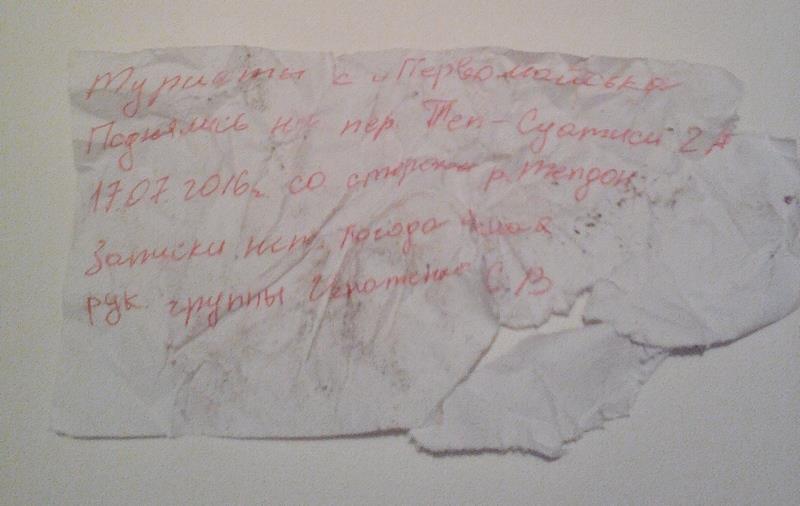 Туристы с г. Первомайська
Поднялись на пер. Теп-Суатиси 2А
17.07.2016г. со стороны р. Тепдон
Записки нет. Погода
рук. группы С.В